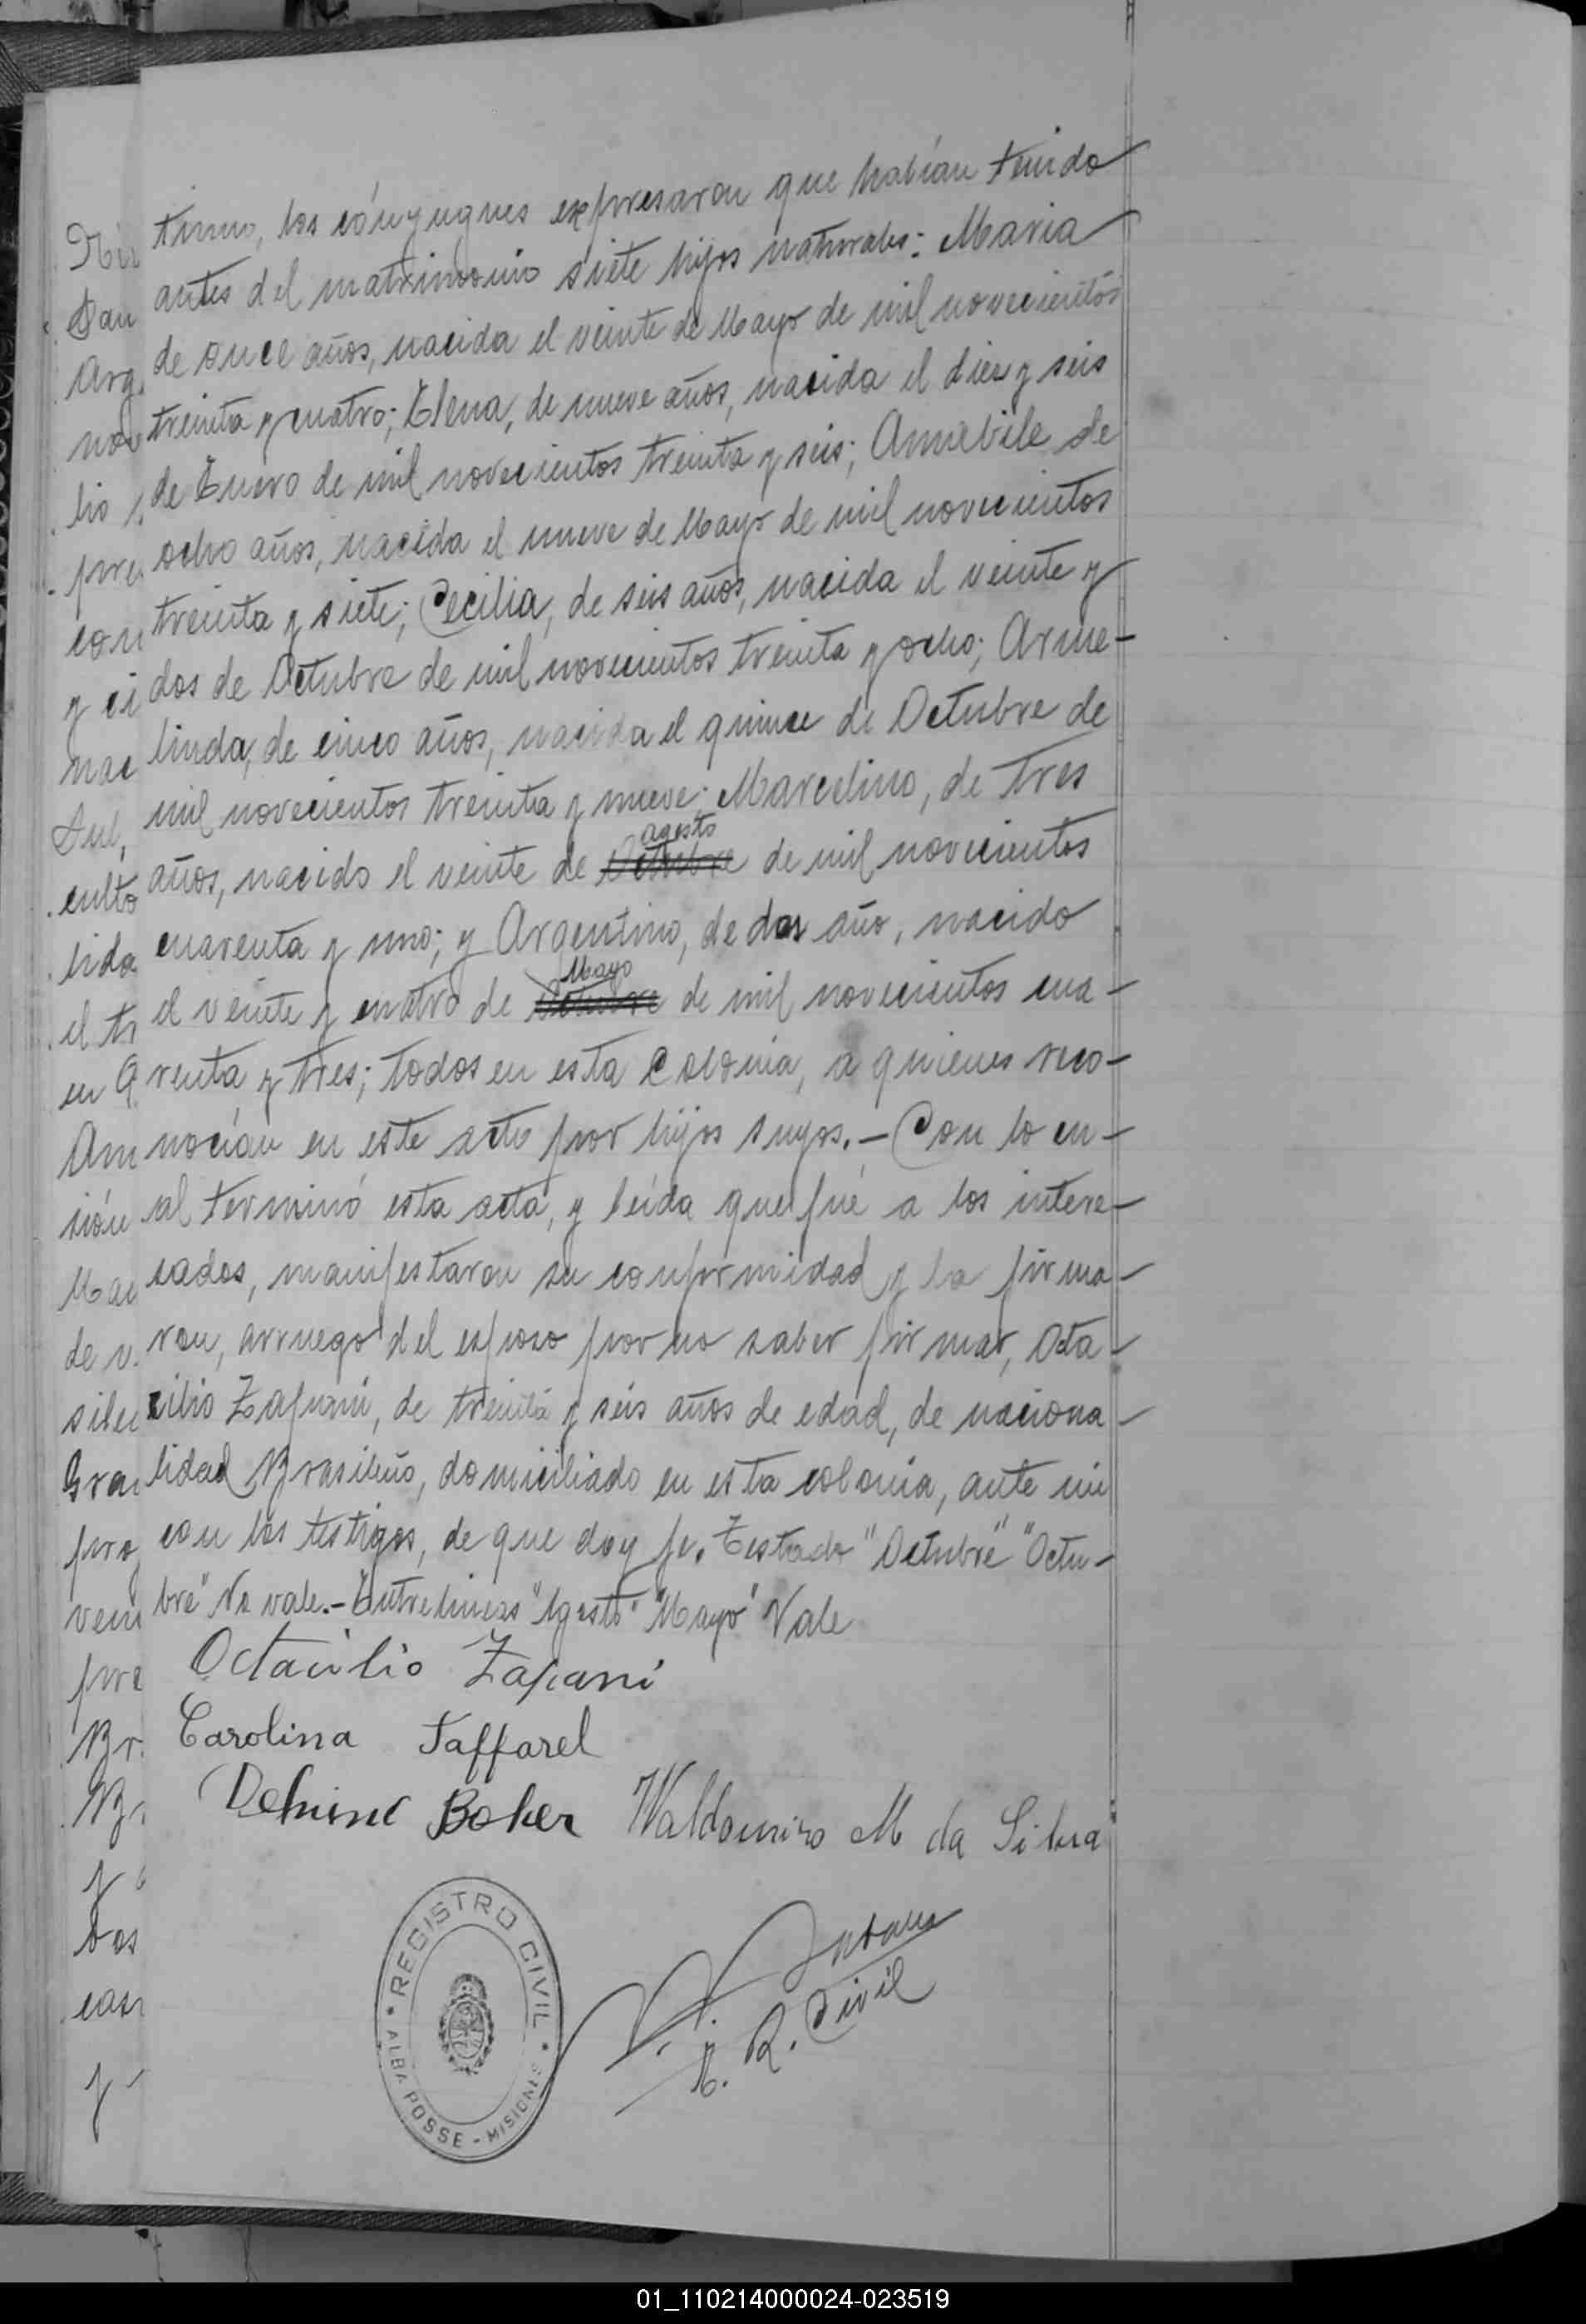 timo, los cónyugues expresaron que habían tenido
antes del matrimonio siete hijos naturales: Maria
de once años, nacida el veinte de Mayo de mil novecientos
treinta y cuatro; Elena, de nueve años, nacida el diez y seis
de Enero de mil novecientos treinta y seis; Amabile de
ocho años, nacida el nueve de Mayo de mil novecientos
treinta y siete; Cecilia, de seis años, nacida el veinte y
dos de Octubre de mil novecientos treinta y ocho; Arme-
linda, de cinco años, nacida el quince de Octubre de
mil novecientos treinta y nueve; Marcelino, de tres
agosto
años, nacido el veinte de Octubre de mil novecientos
cuarenta y uno; y Argentino, de dos año, nacido
Mayo
el veinte y cuatro de Octubre de mil novecientos cua-
renta y tres; todos en esta Colonia, a quienes reco-
nocían en este acto por hijos suyos.- Con lo cu-
al terminó esta acta, y leída que fué a los intere-
sados, manifestaron su conformidad y la firma-
ron, arruego del esposo por no saber firmar, Octa-
cilio Zapani, de treinta y seis años de edad, de naciona-
lidad Brasileño, domiciliado en esta colonia, ante mi
con los testigos, de que doy fe. Testado "Octubre" "Octu-
bre" No vale.- Entrelineas "Agosto" "Mayo" Vale
Octacilio Zapani
Carolina Taffarel
Boher Waldomiro M da Silva
REGISTRO CIVIL
ALBA POSSE - MISIONES
R. Civil
Dan
Arg
nov
lio
pre
con
y ci
nac
Sul,
culto
lida
el tr
en
Am
sión
Mar
de
silei
Gran
pro
veni
pre
Br
Br
y
dos
casa
y
01_110214000024-023519